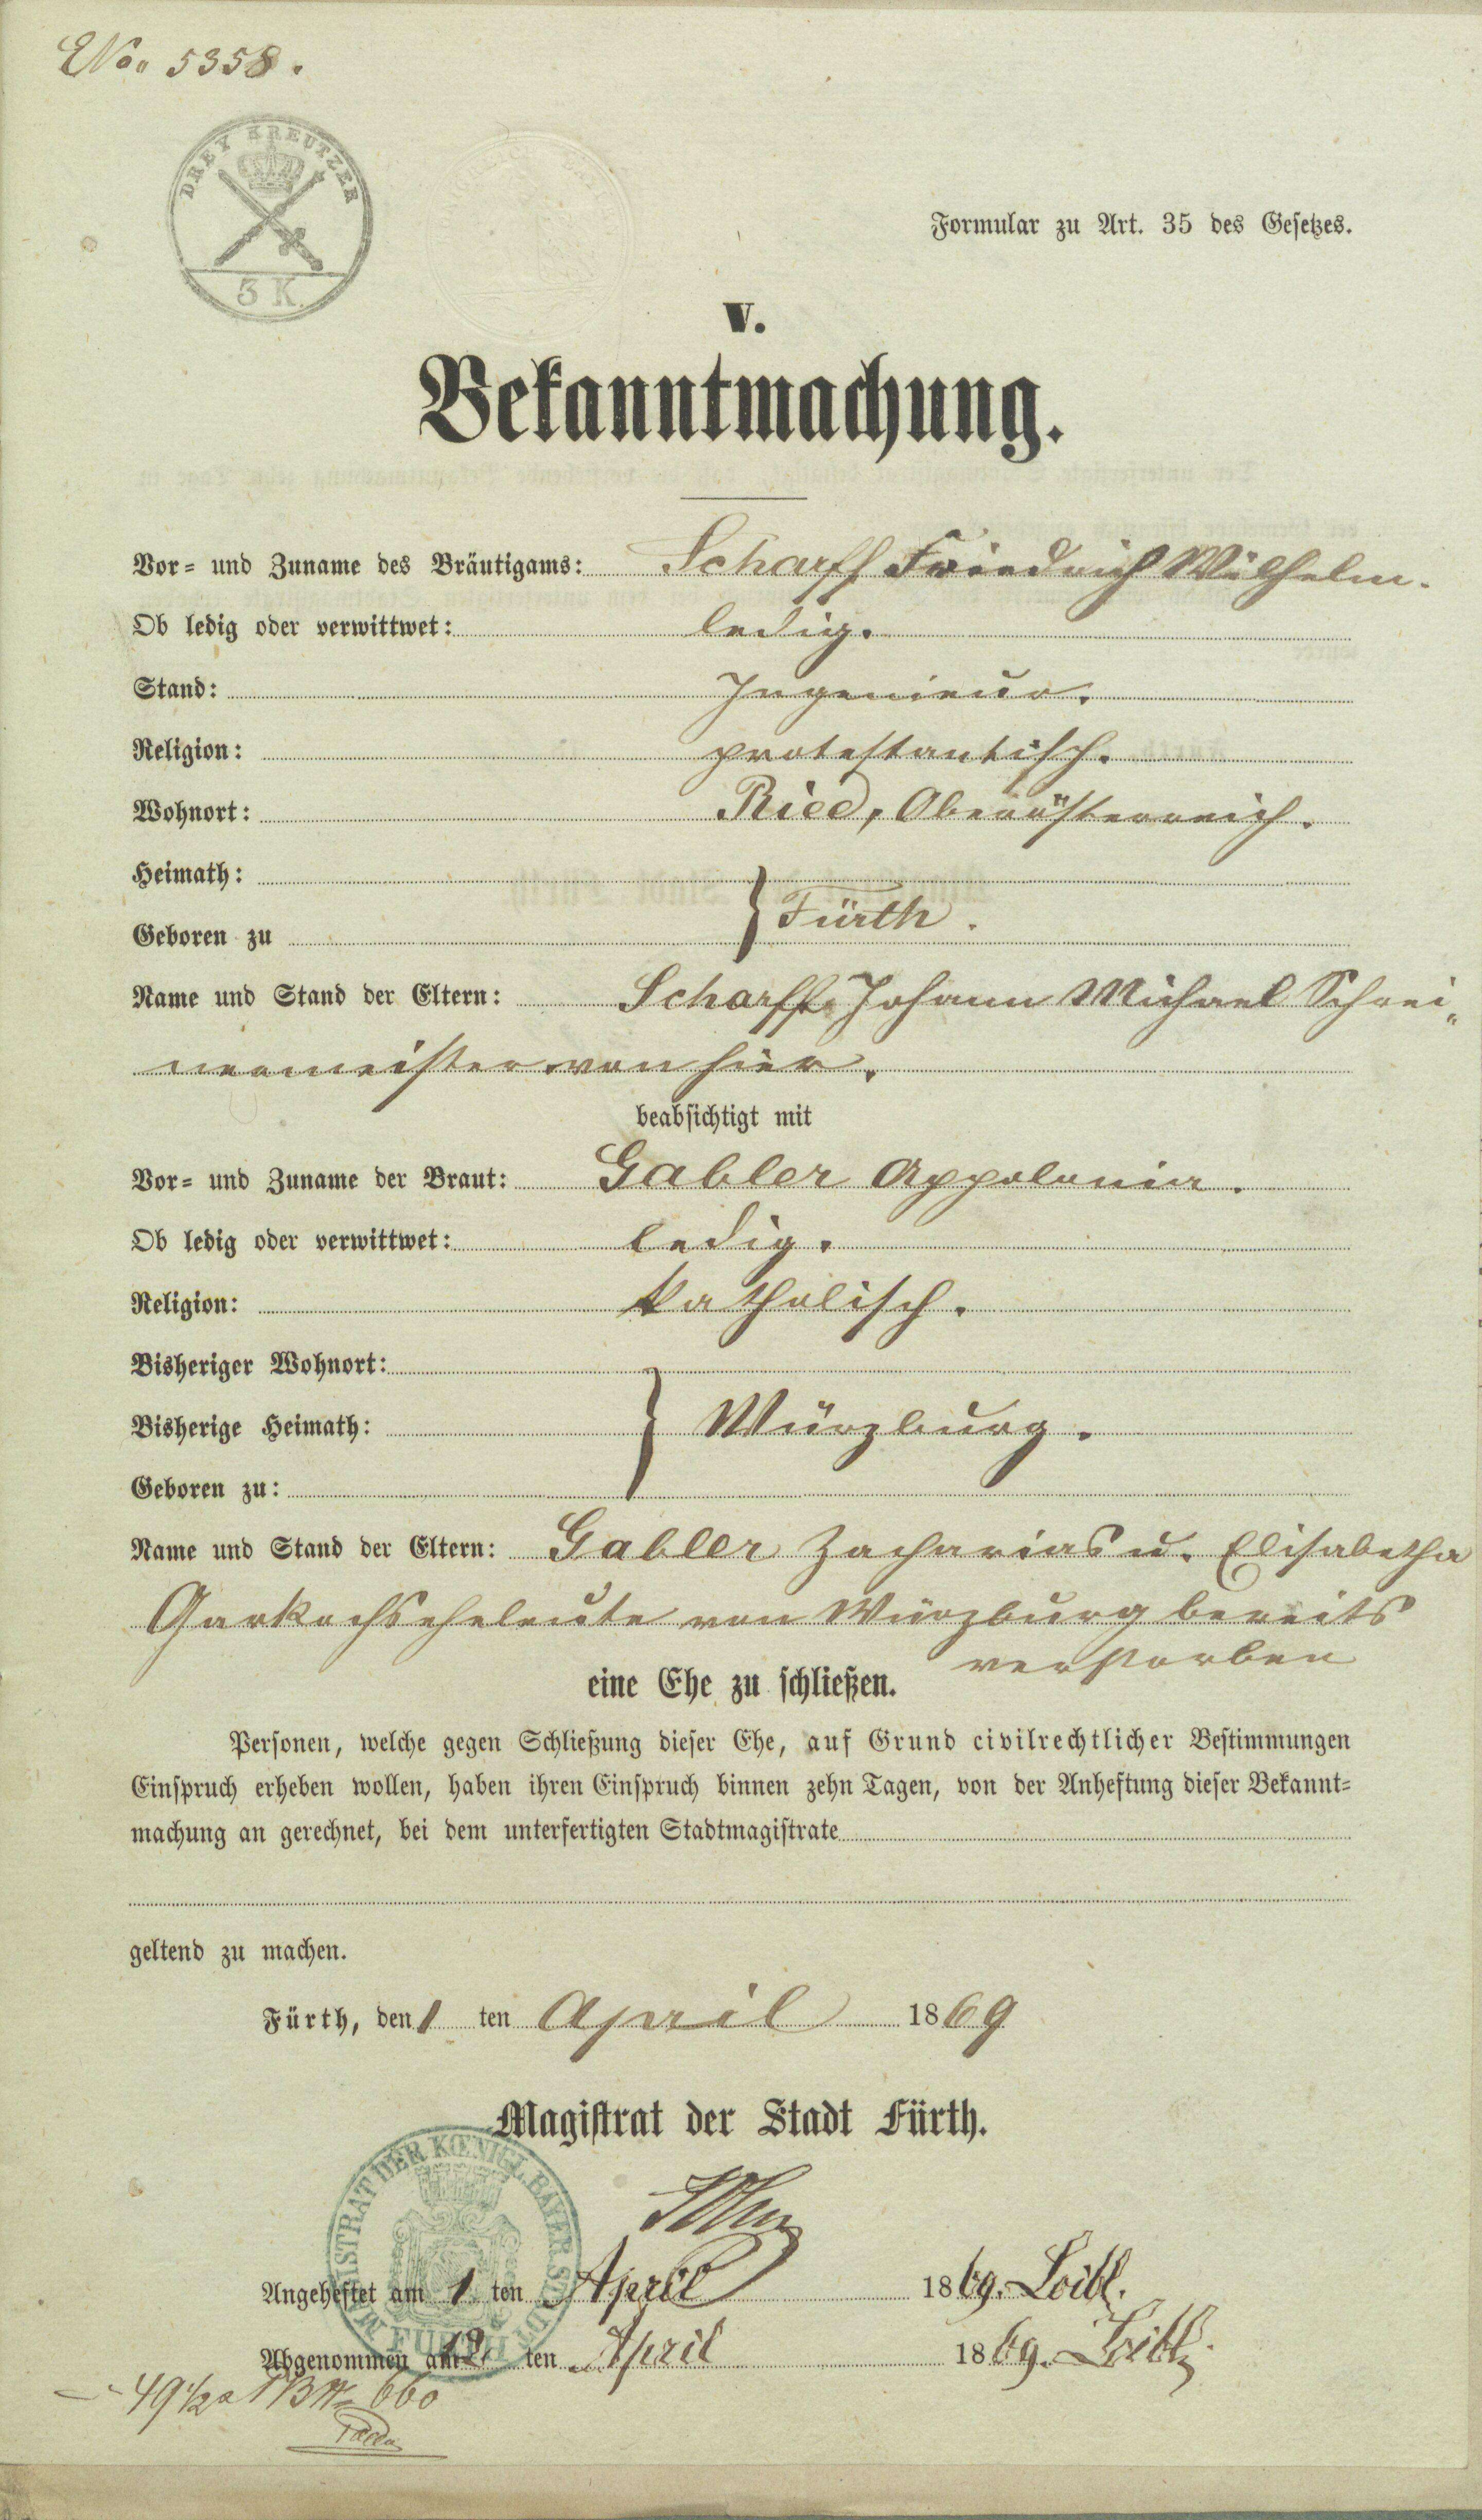 ENo. 5358.
DREY KREUTZER
3 K.
Formular zu Art. 35 des Gesetzes.
V.
Bekanntmachung.
Vor- und Zuname des Bräutigams: Scharff Friedrich Wilhelm.
Ob ledig oder verwittwet: ledig.
Stand: Ingenieur.
Religion: protestantisch.
Wohnort: Ried, Oberösterreich.
Heimath:
} Fürth.
Geboren zu
Name und Stand der Eltern: Scharff Johann Michael Schrei-
nermeister von hier.
beabsichtigt mit
Vor- und Zuname der Braut: Gabler Appolonia.
Ob ledig oder verwittwet: ledig.
Religion: katholisch.
Bisheriger Wohnort:
Bisherige Heimath: } Würzburg.
Geboren zu:
Name und Stand der Eltern: Gabler Zacharias u. Elisabetha
Garkochseheleute von Würzburg bereits
verstorben
eine Ehe zu schließen.
Personen, welche gegen Schließung dieser Ehe, auf Grund civilrechtlicher Bestimmungen
Einspruch erheben wollen, haben ihren Einspruch binnen zehn Tagen, von der Anheftung dieser Bekannt-
machung an gerechnet, bei dem unterfertigten Stadtmagistrate
geltend zu machen.
Fürth, den 1 ten April 1869
Magistrat der Stadt Fürth.
MAGISTRAT DER KŒNIGL. BAYER. STADT FÜRTH
Angeheftet am 1 ten April 1869. Loibl.
Abgenommen am 12 ten April 1869. Loibl.
49 1/2 660